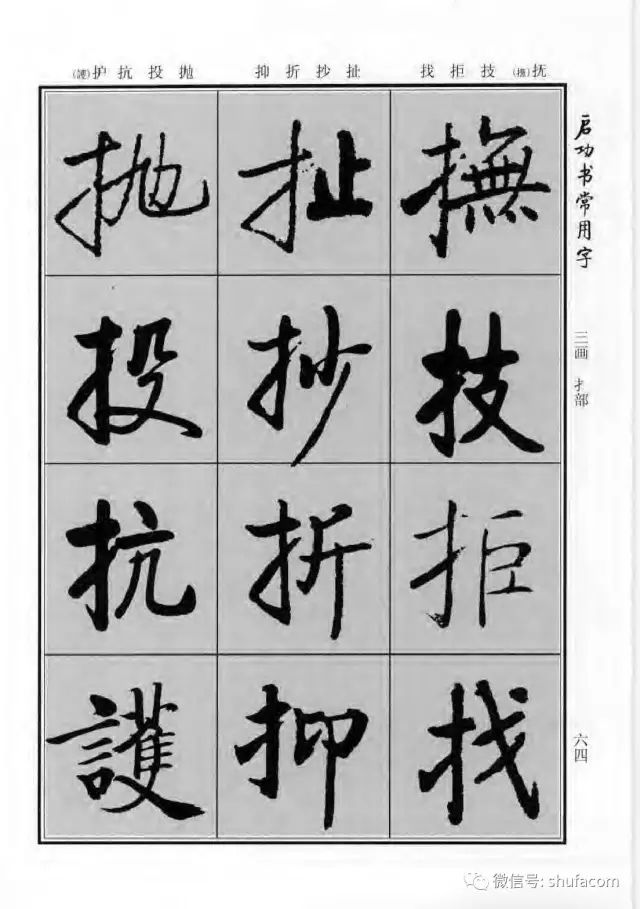 (護)护抗投抛 抑折抄扯 找拒技(撫)抚
启功书常用字
三画 扌部
六四
撫技拒找
扯抄折抑
抛投抗護
微信号: shufacom